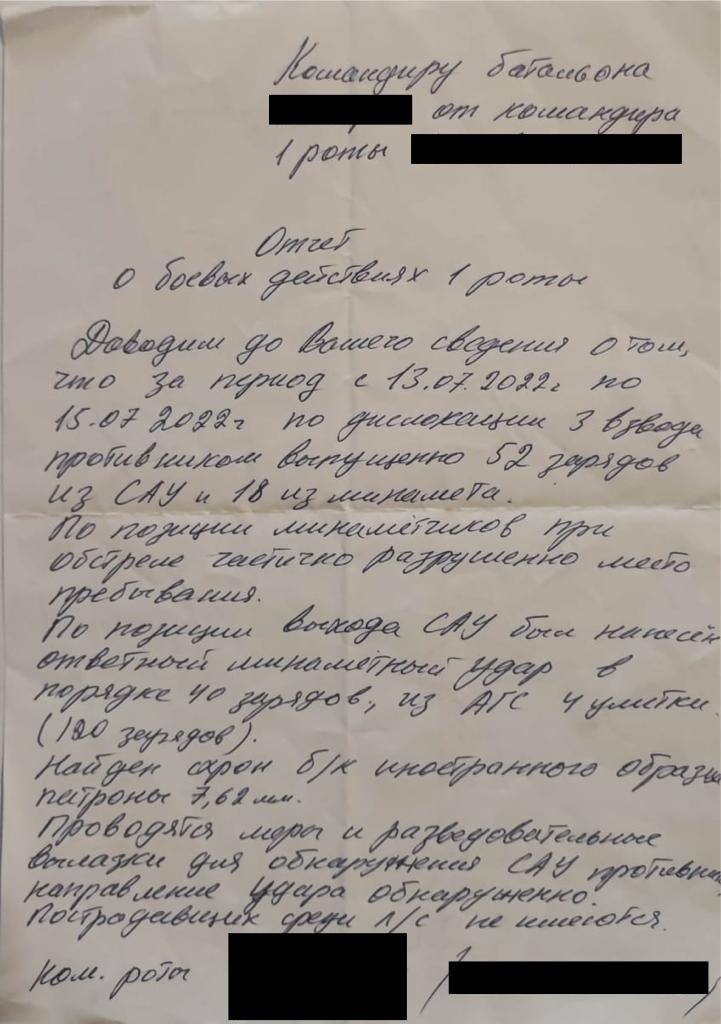 Командиру батальона
от командира
1 роты
Отчет
о боевых действиях 1 роты
Доводим до Вашего сведения о том,
что за период с 13.07.2022г по
15.07 2022г по дислокации 3 взвода
противником выпущенно 52 зарядов
из САУ и 18 из минамета.
По позиции минамётчиков при
обстреле частично разрушенно место
пребывания.
По позиции выхода САУ был нанесён
ответный минамётный удар в
порядке 40 зарядов, из АГС 4 улитки.
(120 зарядов).
Найден схрон б/к иностранного образца
патроны 7,62 мм.
Проводятся меры и разведовательные
вылазки для обнаружения САУ противника
направление удара обнаруженно.
Пострадавших среди л/с не имеются.
Ком. роты